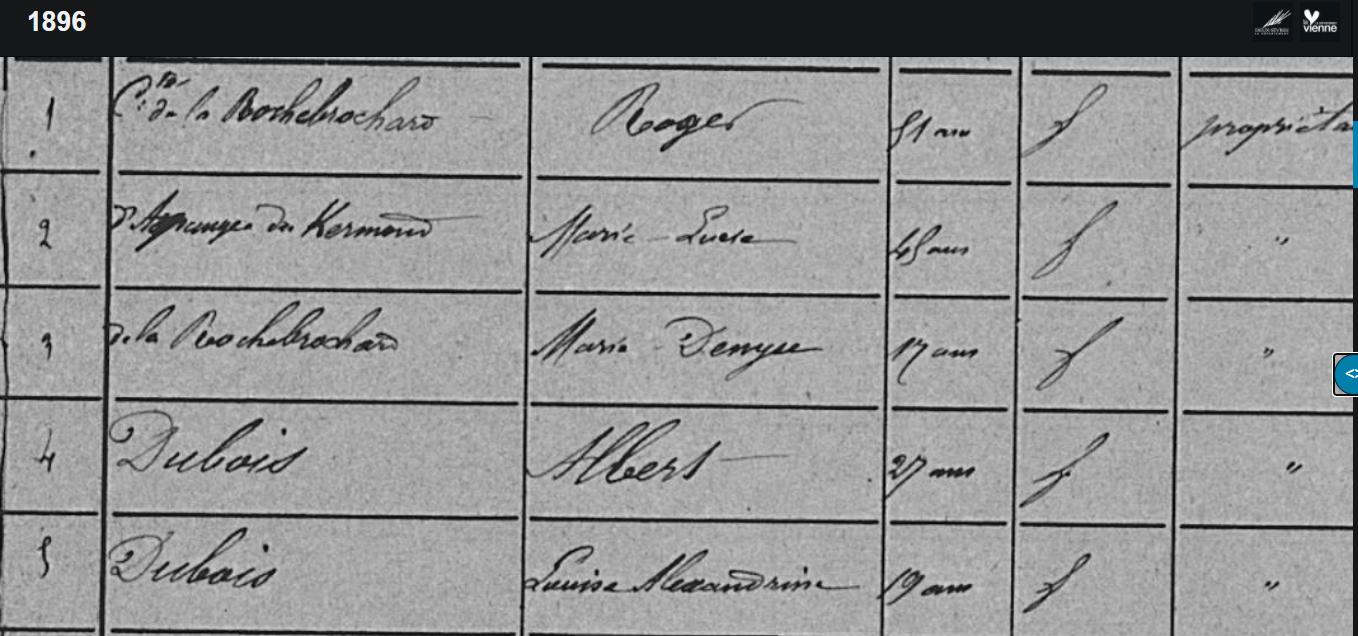 1896
vienne
1 Cte de la Rochebrochard Roger 51 ans f propriéta
2 de Kermond Marie-Lucie 45 ans f "
3 de la Rochebrochard Marie Denyse 17 ans f "
4 Dubois Albert 27 ans f "
5 Dubois Louise Alexandrine 19 ans f "
<>